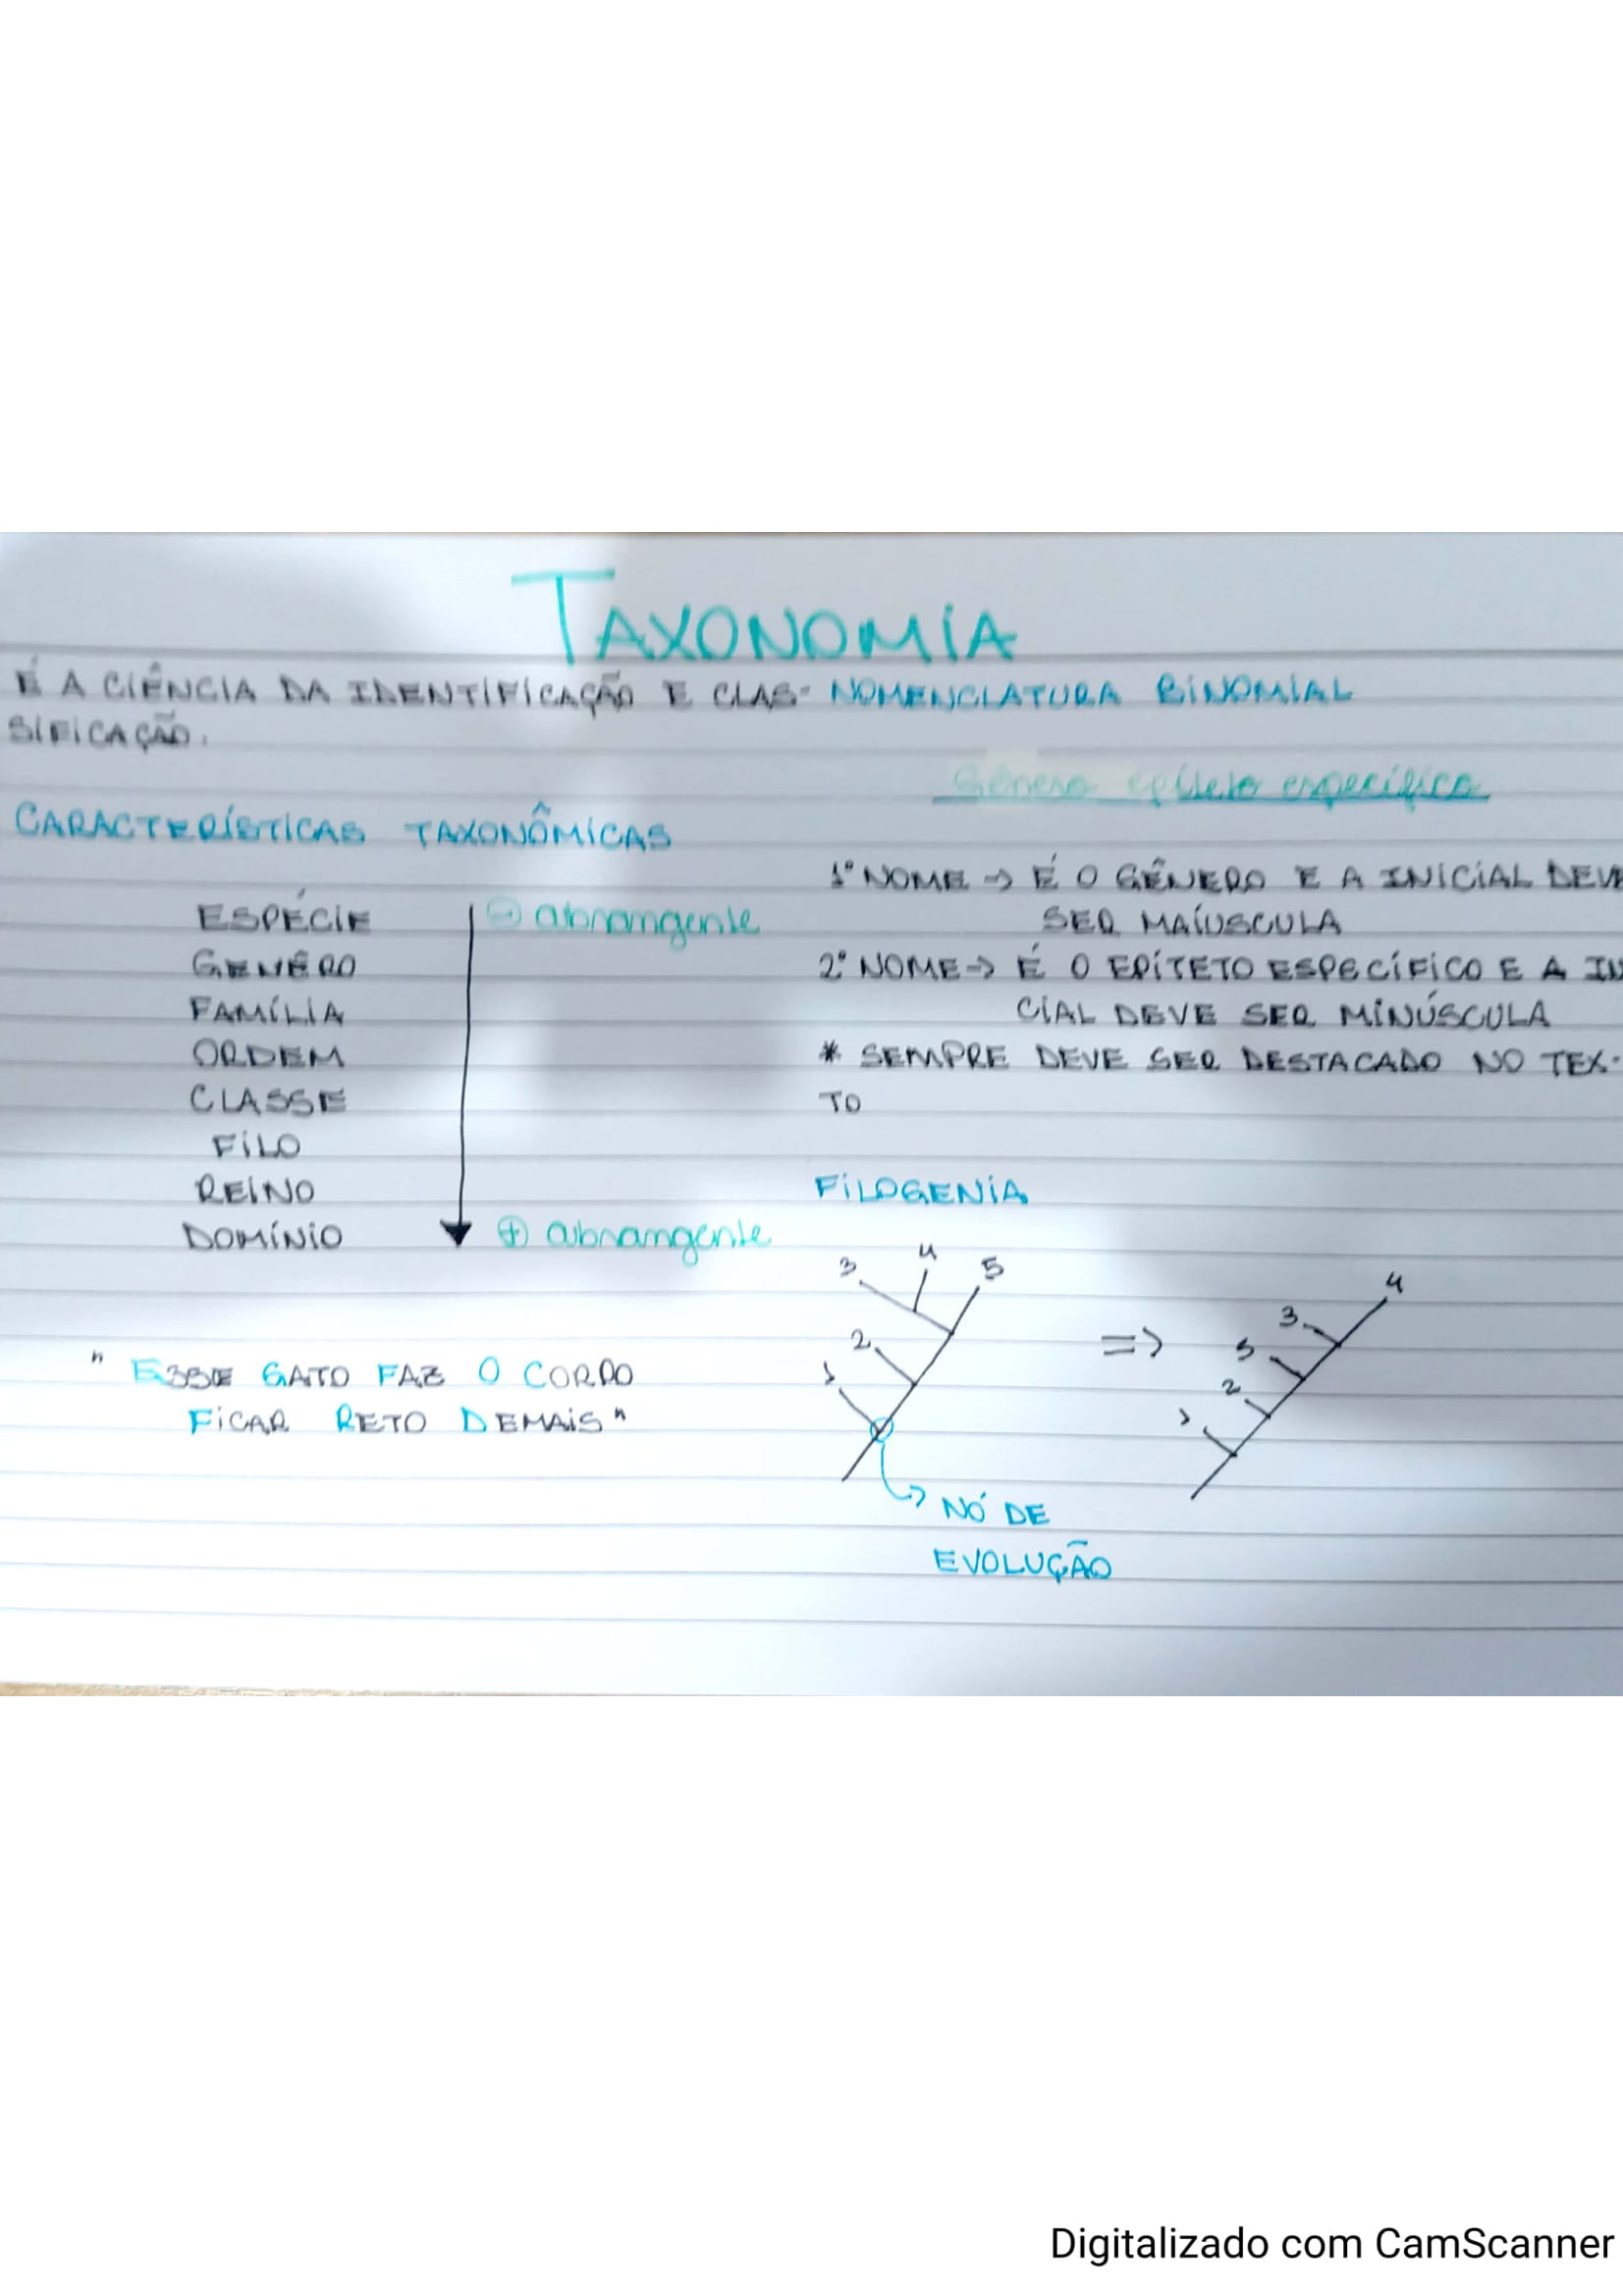 TAXONOMIA
É A CIÊNCIA DA IDENTIFICAÇÃO E CLAS-
SIFICAÇÃO.
CARACTERÍSTICAS TAXONÔMICAS
ESPÉCIE
GENÊRO
FAMÍLIA
ORDEM
CLASSE
FILO
REINO
DOMÍNIO
⊖ abrangente
⊕ abrangente
" ESSE GATO FAZ O CORPO
FICAR RETO DEMAIS "
NOMENCLATURA BINOMIAL
Gênero epíteto específico
1° NOME → É O GÊNERO E A INICIAL DEVE
SER MAÍUSCULA
2° NOME → É O EPÍTETO ESPECÍFICO E A IN
CIAL DEVE SER MINÚSCULA
* SEMPRE DEVE SER DESTACADO NO TEX-
TO
FILOGENIA
3 4 5
2
1
=>
4
3
5
2
1
NÓ DE
EVOLUÇÃO
Digitalizado com CamScanner